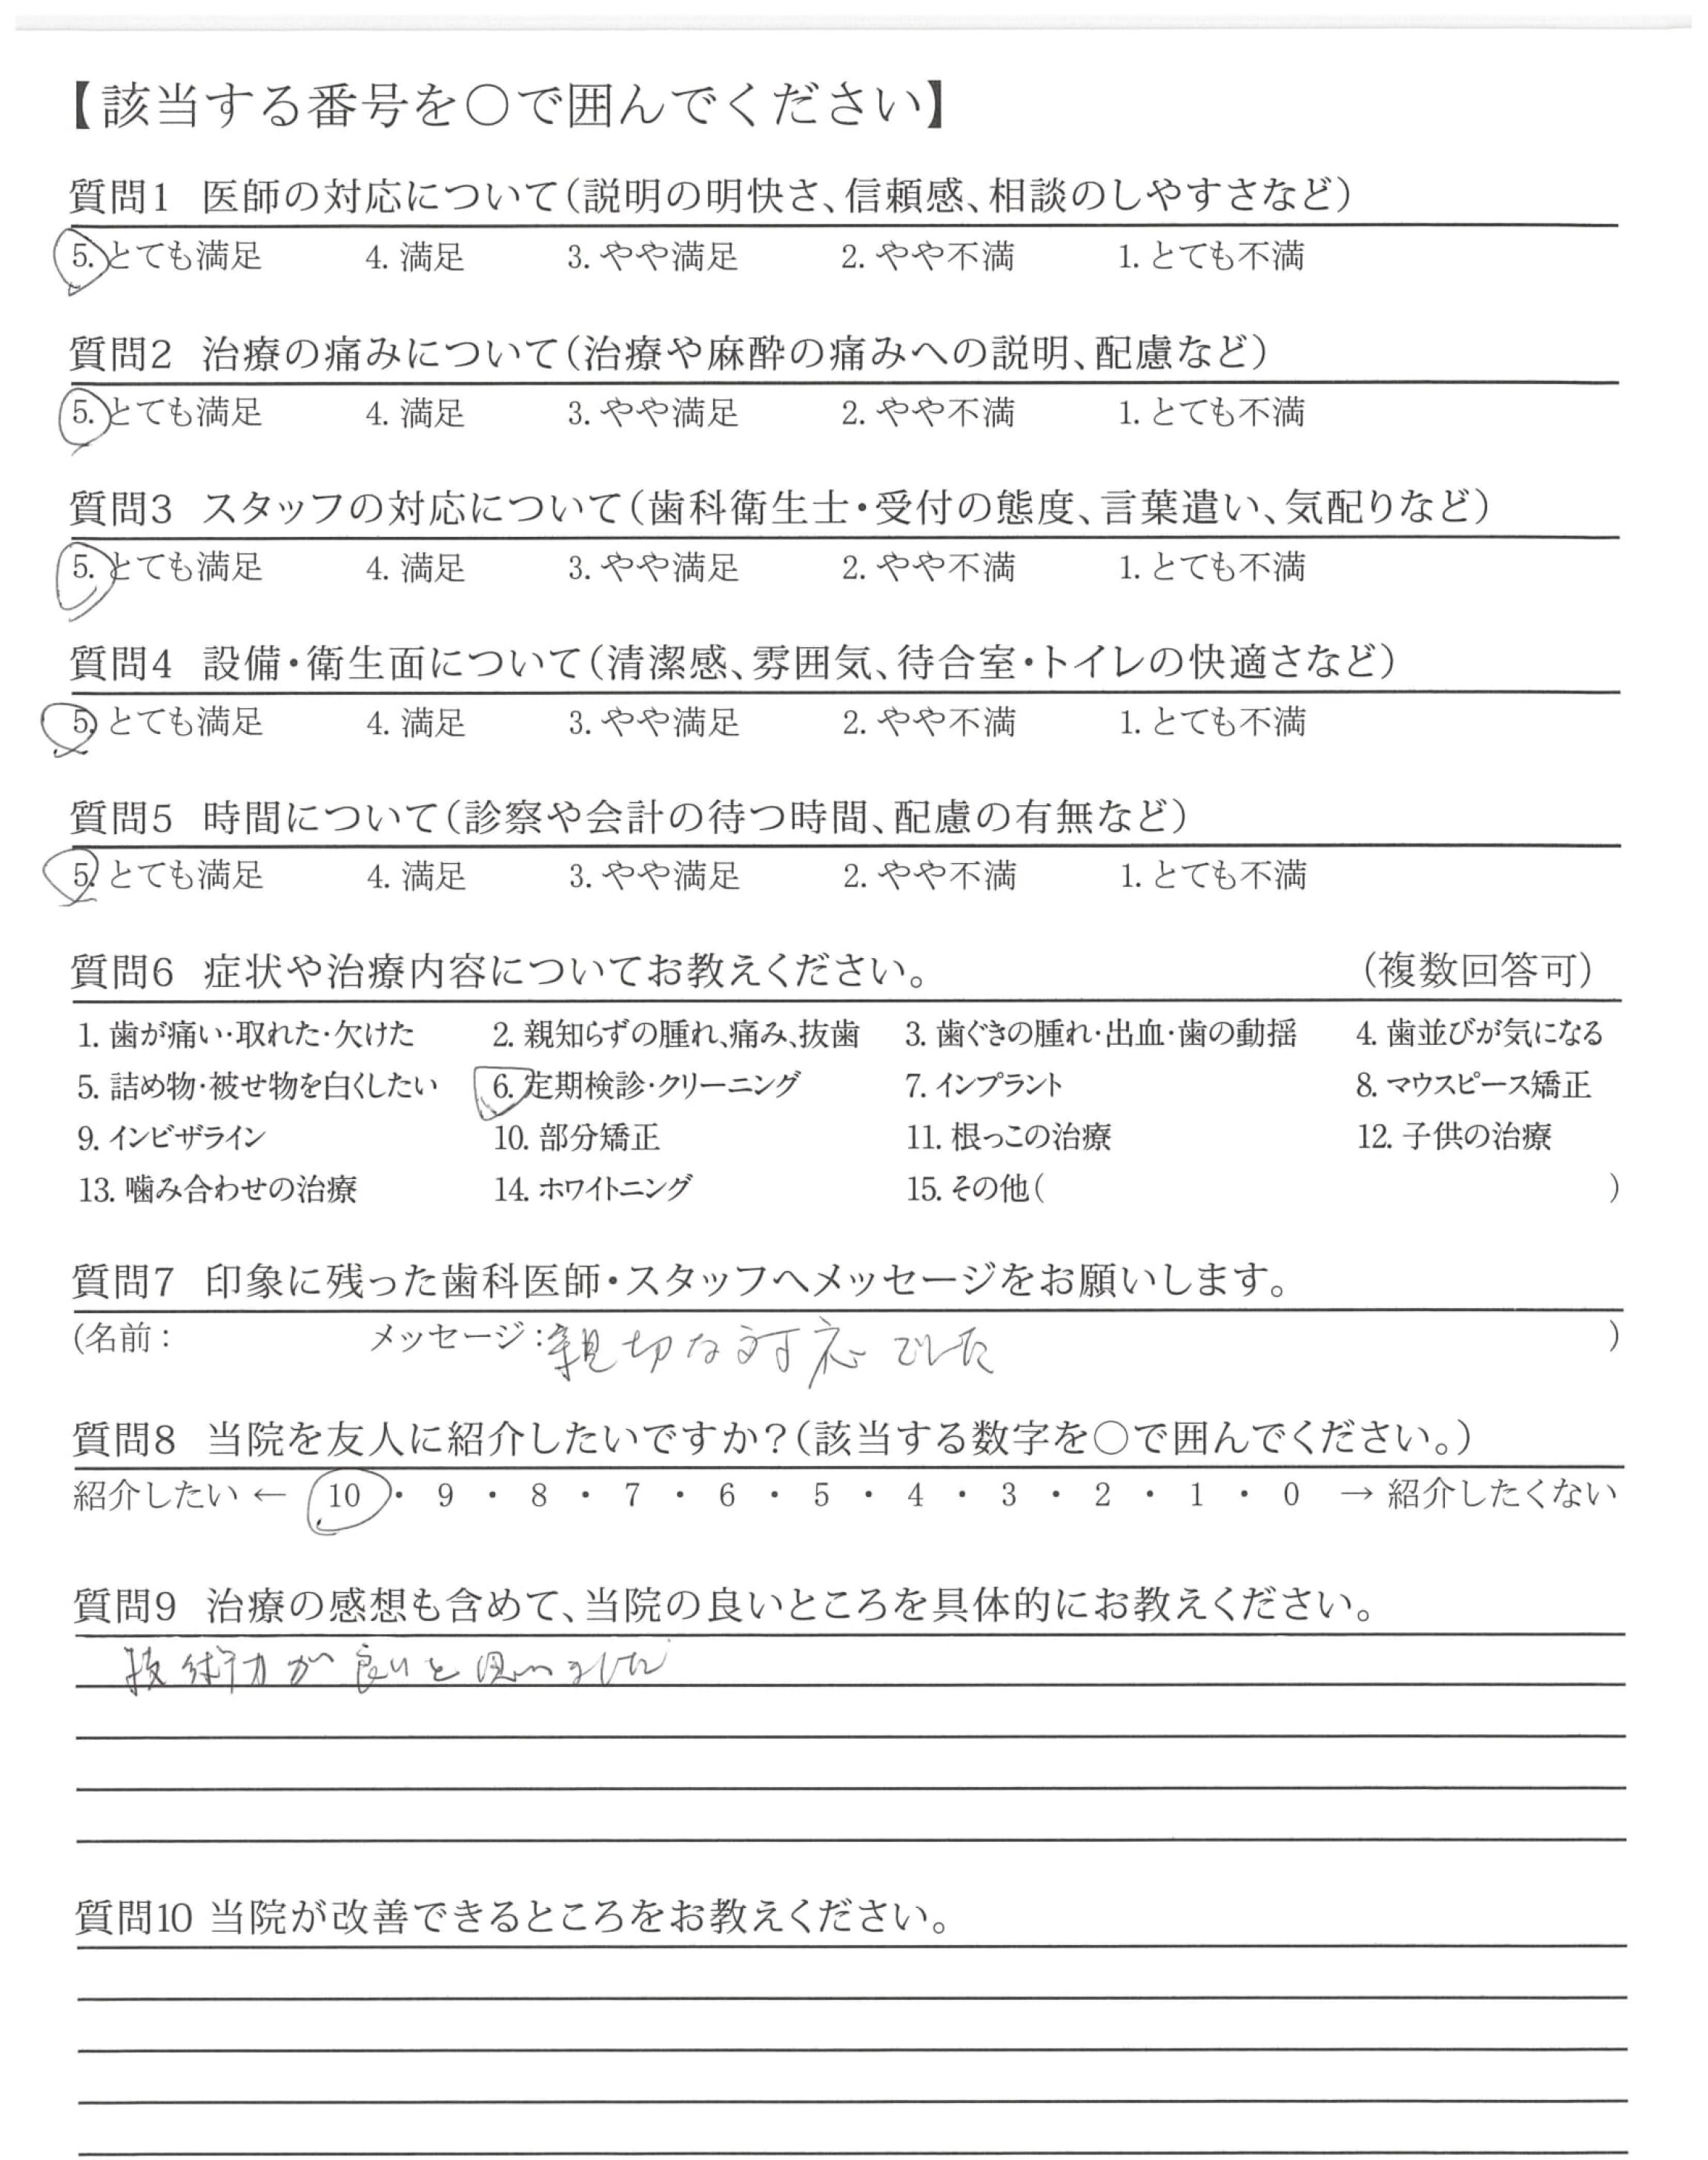 【該当する番号を○で囲んでください】
質問1 医師の対応について(説明の明快さ、信頼感、相談のしやすさなど)
5. とても満足 4. 満足 3. やや満足 2. やや不満 1. とても不満
質問2 治療の痛みについて(治療や麻酔の痛みへの説明、配慮など)
5. とても満足 4. 満足 3. やや満足 2. やや不満 1. とても不満
質問3 スタッフの対応について(歯科衛生士・受付の態度、言葉遣い、気配りなど)
5. とても満足 4. 満足 3. やや満足 2. やや不満 1. とても不満
質問4 設備・衛生面について(清潔感、雰囲気、待合室・トイレの快適さなど)
5. とても満足 4. 満足 3. やや満足 2. やや不満 1. とても不満
質問5 時間について(診察や会計の待つ時間、配慮の有無など)
5. とても満足 4. 満足 3. やや満足 2. やや不満 1. とても不満
質問6 症状や治療内容についてお教えください。 (複数回答可)
1. 歯が痛い・取れた・欠けた 2. 親知らずの腫れ、痛み、抜歯 3. 歯ぐきの腫れ・出血・歯の動揺 4. 歯並びが気になる
5. 詰め物・被せ物を白くしたい 6. 定期検診・クリーニング 7. インプラント 8. マウスピース矯正
9. インビザライン 10. 部分矯正 11. 根っこの治療 12. 子供の治療
13. 噛み合わせの治療 14. ホワイトニング 15. その他( )
質問7 印象に残った歯科医師・スタッフへメッセージをお願いします。
(名前: メッセージ:親切な対応でした )
質問8 当院を友人に紹介したいですか?(該当する数字を○で囲んでください。)
紹介したい ← 10 ・ 9 ・ 8 ・ 7 ・ 6 ・ 5 ・ 4 ・ 3 ・ 2 ・ 1 ・ 0 → 紹介したくない
質問9 治療の感想も含めて、当院の良いところを具体的にお教えください。
技術力が良いと思いました
質問10 当院が改善できるところをお教えください。